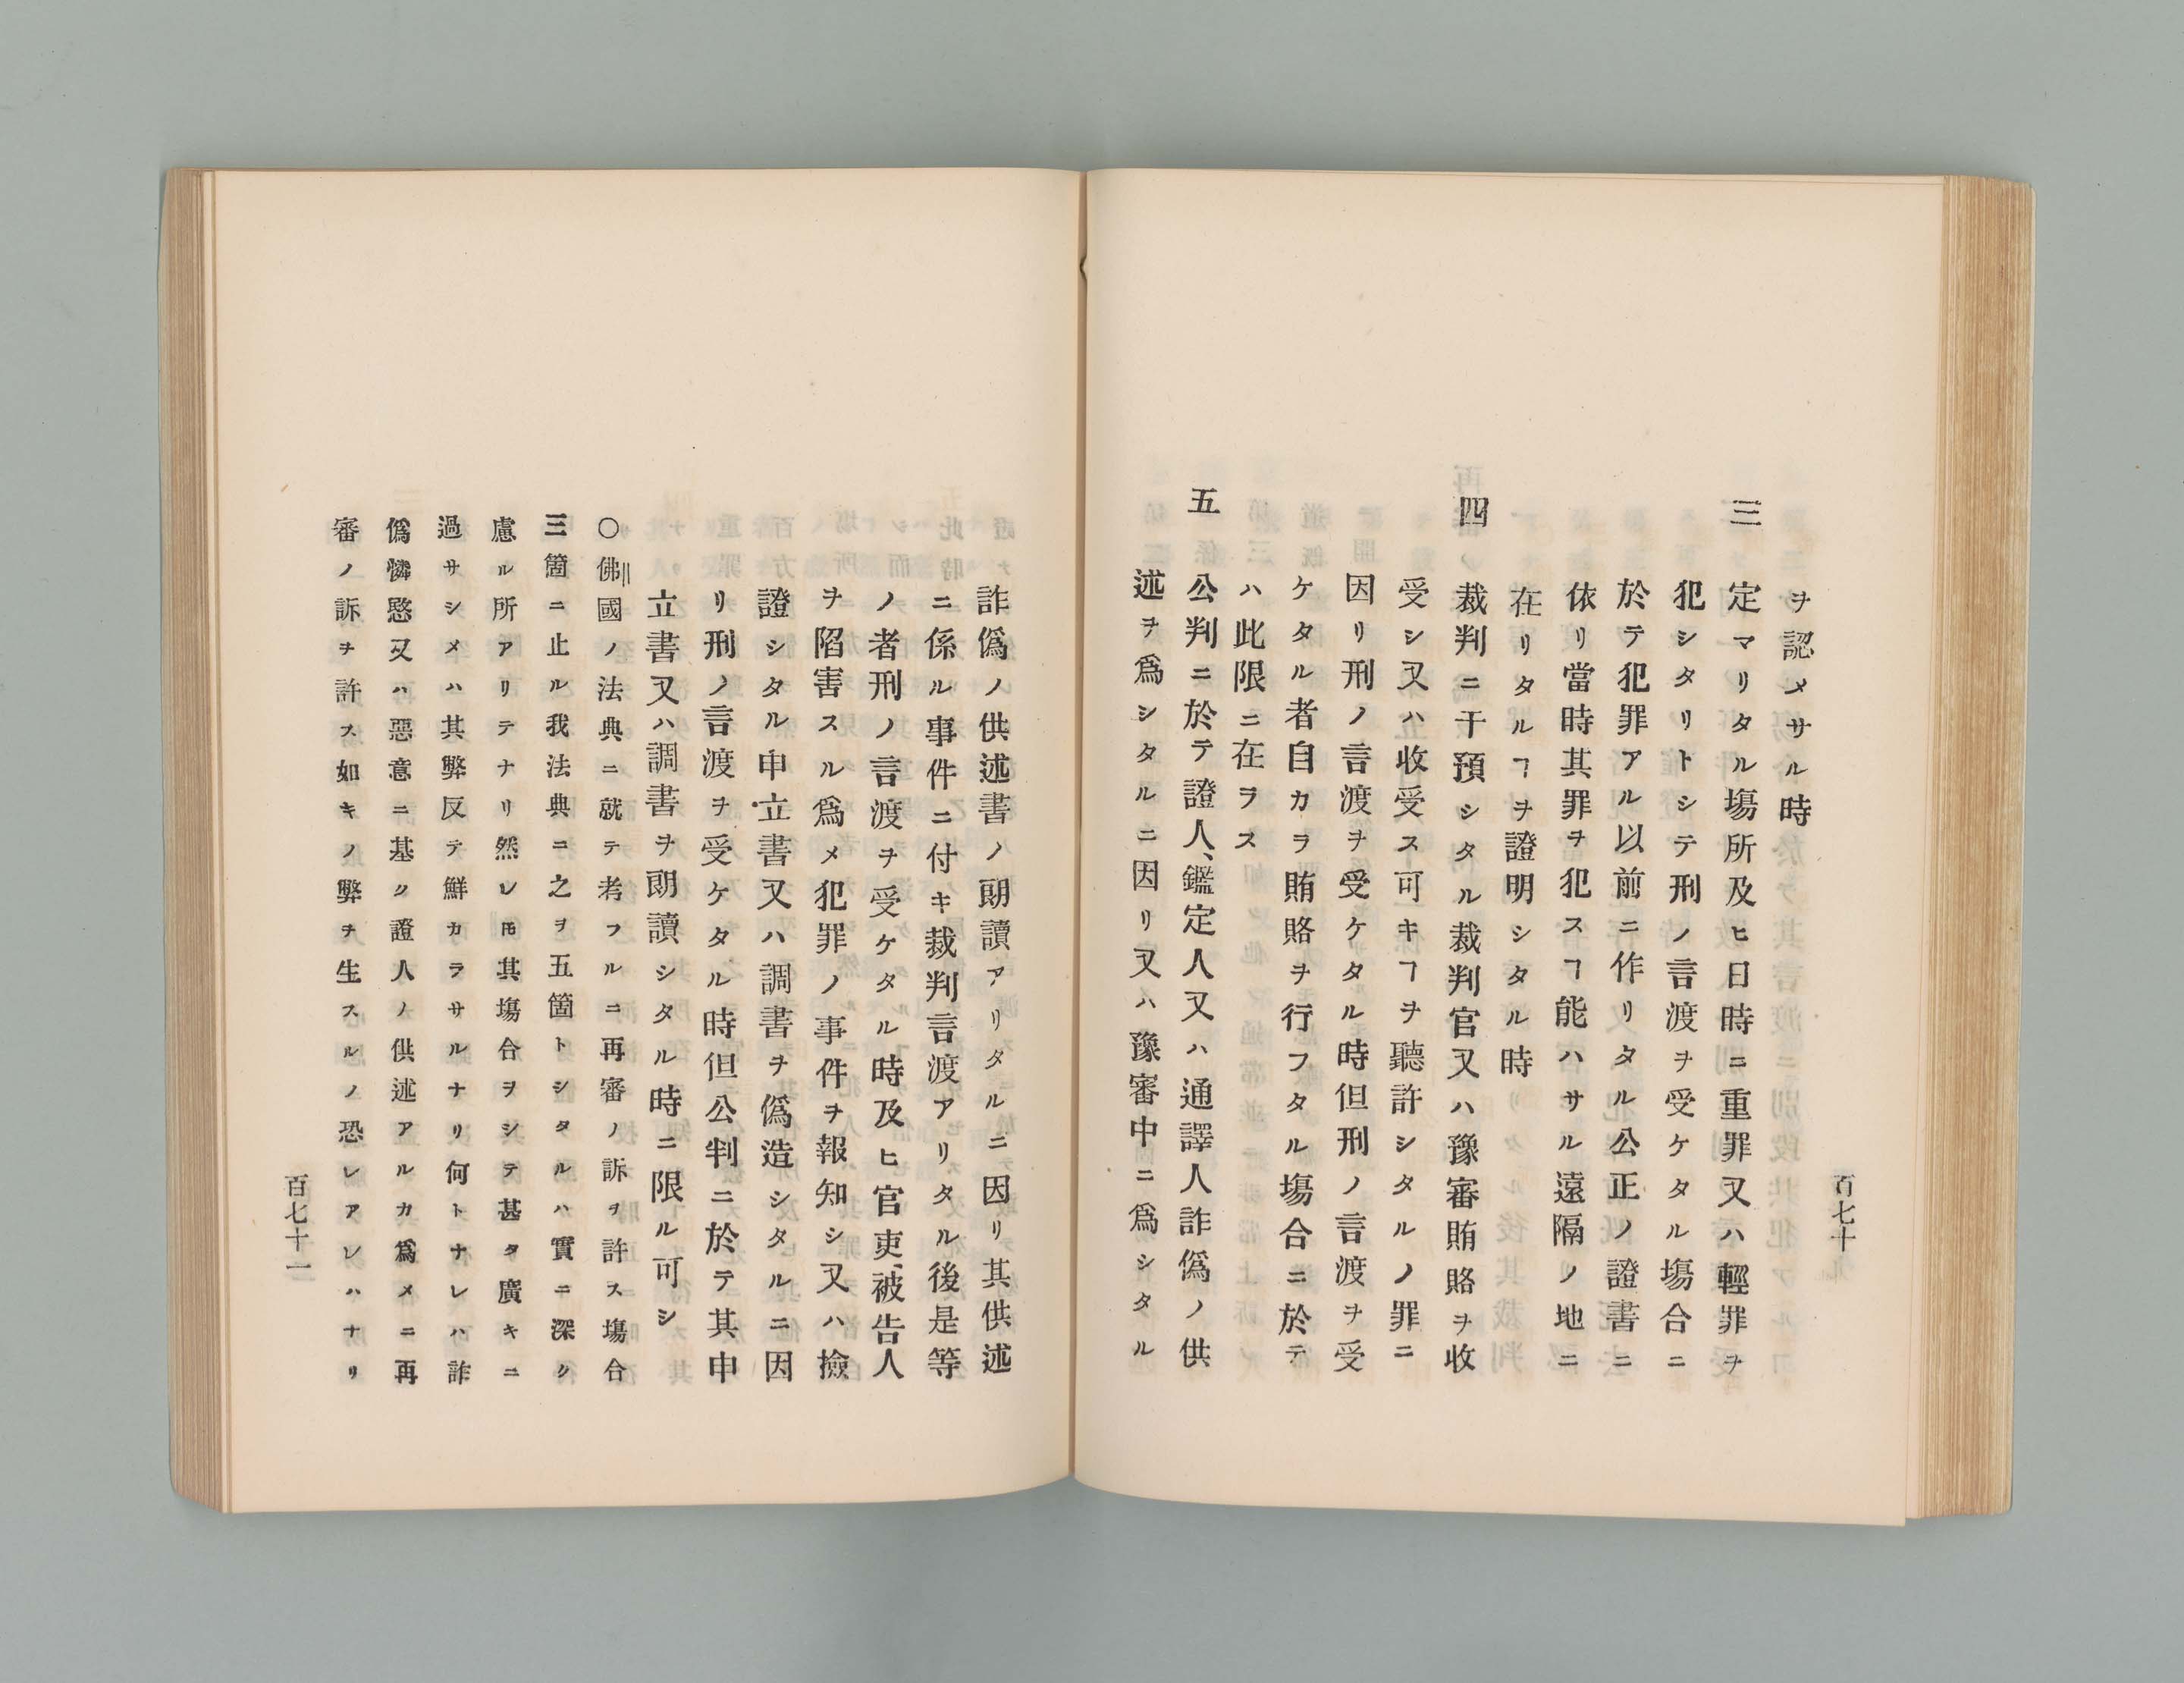 百七十
ヲ認メサル時
三 定マリタル塲所及ヒ日時ニ重罪又ハ輕罪ヲ
犯シタリトシテ刑ノ言渡ヲ受ケタル塲合ニ
於テ犯罪アル以前ニ作リタル公正ノ證書ニ
依リ當時其罪ヲ犯スヿ能ハサル遠隔ノ地ニ
在リタルヿヲ證明シタル時
四 裁判ニ干預シタル裁判官又ハ豫審賄賂ヲ收
受シ又ハ收受ス可キヿヲ聽許シタルノ罪ニ
因リ刑ノ言渡ヲ受ケタル時但刑ノ言渡ヲ受
ケタル者自カラ賄賂ヲ行フタル塲合ニ於テ
ハ此限ニ在ラス
五 公判ニ於テ證人、鑑定人又ハ通譯人詐僞ノ供
述ヲ爲シタルニ因リ又ハ豫審中ニ爲シタル
詐僞ノ供述書ノ朗讀アリタルニ因リ其供述
ニ係ル事件ニ付キ裁判言渡アリタル後是等
ノ者刑ノ言渡ヲ受ケタル時及ヒ官吏、被告人
ヲ陷害スル爲メ犯罪ノ事件ヲ報知シ又ハ撿
證シタル申立書又ハ調書ヲ僞造シタルニ因
リ刑ノ言渡ヲ受ケタル時但公判ニ於テ其申
立書又ハ調書ヲ朗讀シタル時ニ限ル可シ
○佛國ノ法典ニ就テ考フルニ再審ノ訴ヲ許ス塲合
三箇ニ止ル我法典ニ之ヲ五箇トシタルハ實ニ深ク
慮ル所アリテナリ然レ𪜈其塲合ヲシテ甚タ廣キニ
過サシメハ其弊反テ鮮カラサルナリ何トナレハ詐
僞憐愍又ハ惡意ニ基ク證人ノ供述アルカ爲メニ再
審ノ訴ヲ許ス如キノ弊ヲ生スルノ恐レアレハナリ
百七十一